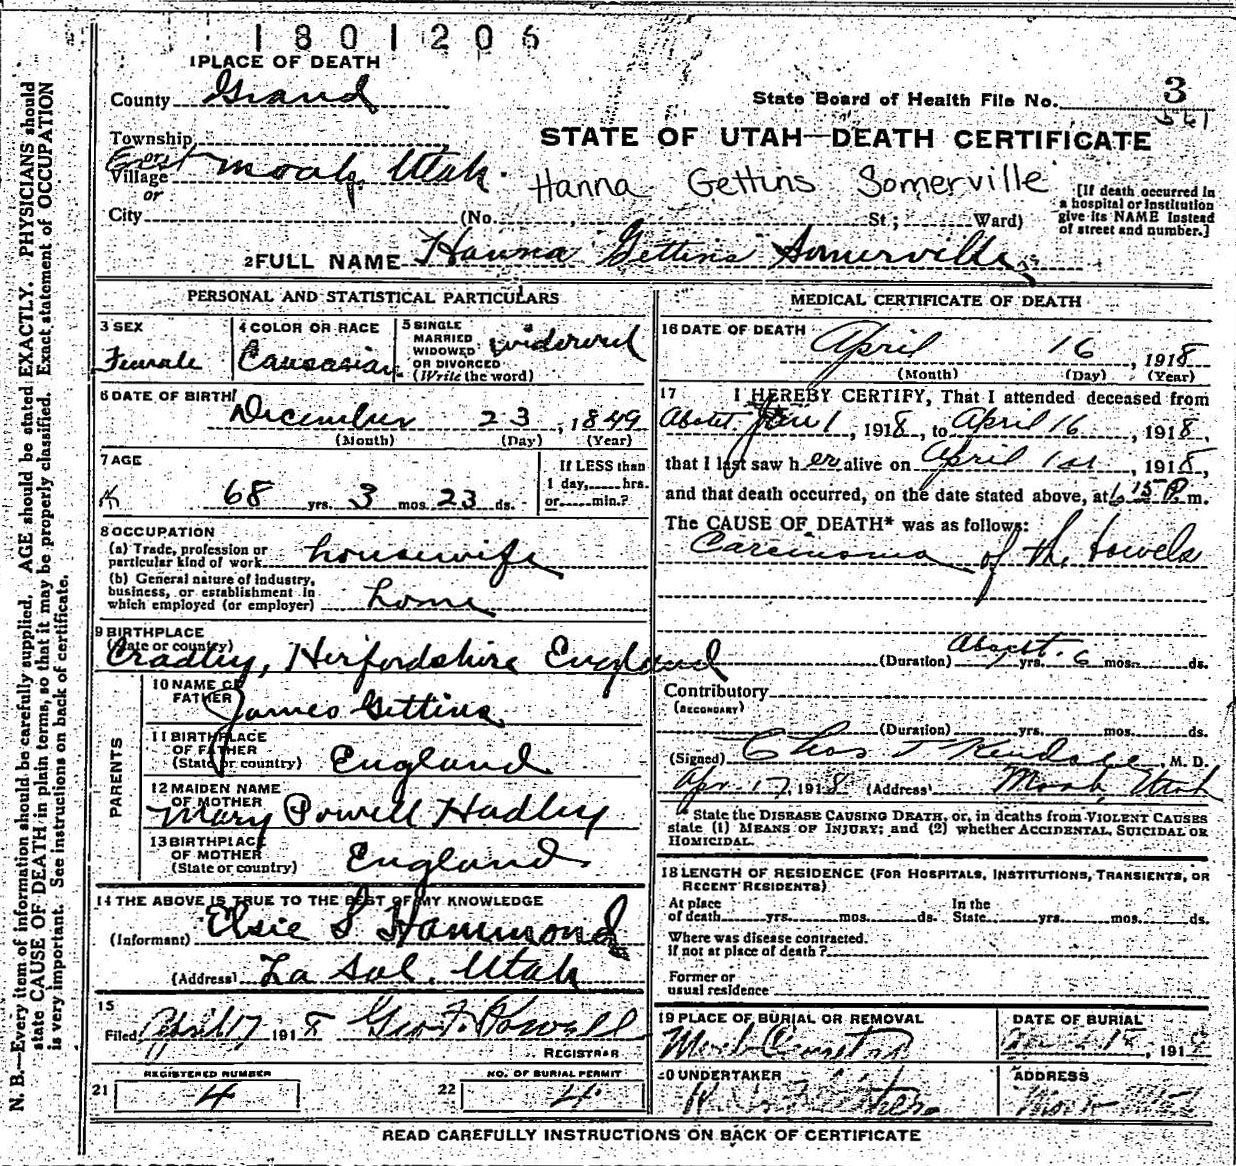 1801206
1 PLACE OF DEATH
County Grand
State Board of Health File No. 3
561
Township
or
STATE OF UTAH—DEATH CERTIFICATE
Village East Moab, Utah.
or
Hanna Gettins Somerville
City (No. , St; Ward)
[If death occurred in
a hospital or institution
give its NAME instead
of street and number.]
2 FULL NAME Hanna Gettins Somerville
PERSONAL AND STATISTICAL PARTICULARS
3 SEX
Female
4 COLOR OR RACE
Caucasian
5 SINGLE
MARRIED
WIDOWED
OR DIVORCED
(Write the word)
widowed
6 DATE OF BIRTH
December 23, 1849
(Month) (Day) (Year)
7 AGE
68 yrs. 3 mos. 23 ds.
If LESS than
1 day, hrs.
or min.?
8 OCCUPATION
(a) Trade, profession or
particular kind of work housewife
(b) General nature of industry,
business, or establishment in
which employed (or employer) home
9 BIRTHPLACE
(State or country)
Cradley, Herfordshire England
PARENTS
10 NAME OF
FATHER
James Gettins
11 BIRTHPLACE
OF FATHER
(State or country) England
12 MAIDEN NAME
OF MOTHER
Mary Powell Hadley
13 BIRTHPLACE
OF MOTHER
(State or country) England
14 THE ABOVE IS TRUE TO THE BEST OF MY KNOWLEDGE
(Informant) Elsie S Hammond
(Address) La Sal, Utah
15
Filed April 17 1918 Geo. F. Powell
REGISTRAR
REGISTERED NUMBER
21 4
NO. OF BURIAL PERMIT
22 4
MEDICAL CERTIFICATE OF DEATH
16 DATE OF DEATH
April 16, 1918
(Month) (Day) (Year)
17 I HEREBY CERTIFY, That I attended deceased from
About Jan 1, 1918, to April 16, 1918,
that I last saw her alive on April 1st, 1918,
and that death occurred, on the date stated above, at 6 15 P. m.
The CAUSE OF DEATH* was as follows:
Carcinoma of the bowels
(Duration) About yrs. 6 mos. ds.
Contributory
(SECONDARY)
(Duration) yrs. mos. ds.
(Signed) Chas, M. D.
Apr. 17, 1918 (Address) Moab, Utah
* State the DISEASE CAUSING DEATH, or, in deaths from VIOLENT CAUSES
state (1) MEANS OF INJURY; and (2) whether ACCIDENTAL, SUICIDAL OR
HOMICIDAL.
18 LENGTH OF RESIDENCE (FOR HOSPITALS, INSTITUTIONS, TRANSIENTS, OR
RECENT RESIDENTS)
At place In the
of death yrs. mos. ds. State yrs. mos. ds.
Where was disease contracted.
if not at place of death?
Former or
usual residence
19 PLACE OF BURIAL OR REMOVAL
Moab
DATE OF BURIAL
18, 191
20 UNDERTAKER
ADDRESS
Moab Utah
READ CAREFULLY INSTRUCTIONS ON BACK OF CERTIFICATE
N. B.—Every item of information should be carefully supplied. AGE should be stated EXACTLY. PHYSICIANS should
state CAUSE OF DEATH in plain terms, so that it may be properly classified. Exact statement of OCCUPATION
is very important. See instructions on back of certificate.